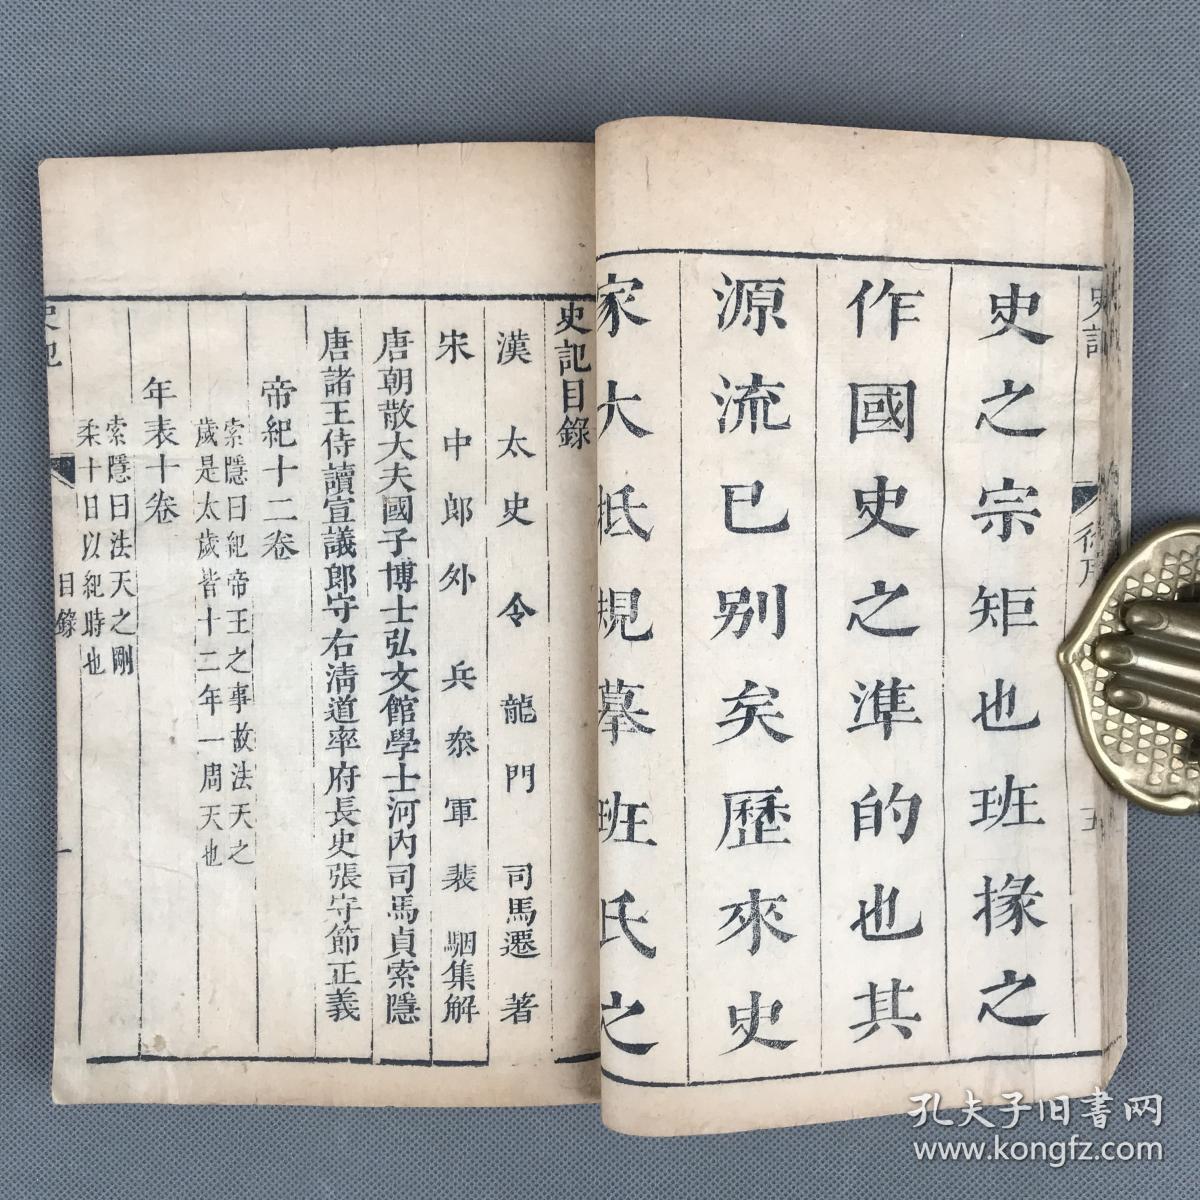 史之宗矩也班掾之
作國史之準的也其
源流已别矣歷來史
家大抵規摹班氏之
史記目錄
漢太史令龍門司馬遷著
宋中郎外兵叅軍裴駰集解
唐朝散大夫國子博士弘文館學士河內司馬貞索隱
唐諸王侍讀宣議郎守右清道率府長史張守節正義
帝紀十二卷
索隱曰紀帝王之事故法天之
歲是太歲皆十二年一周天也
年表十卷
索隱曰法天之剛
柔十日以紀時也
史記
目錄
一
孔夫子旧書网
www.kongfz.com